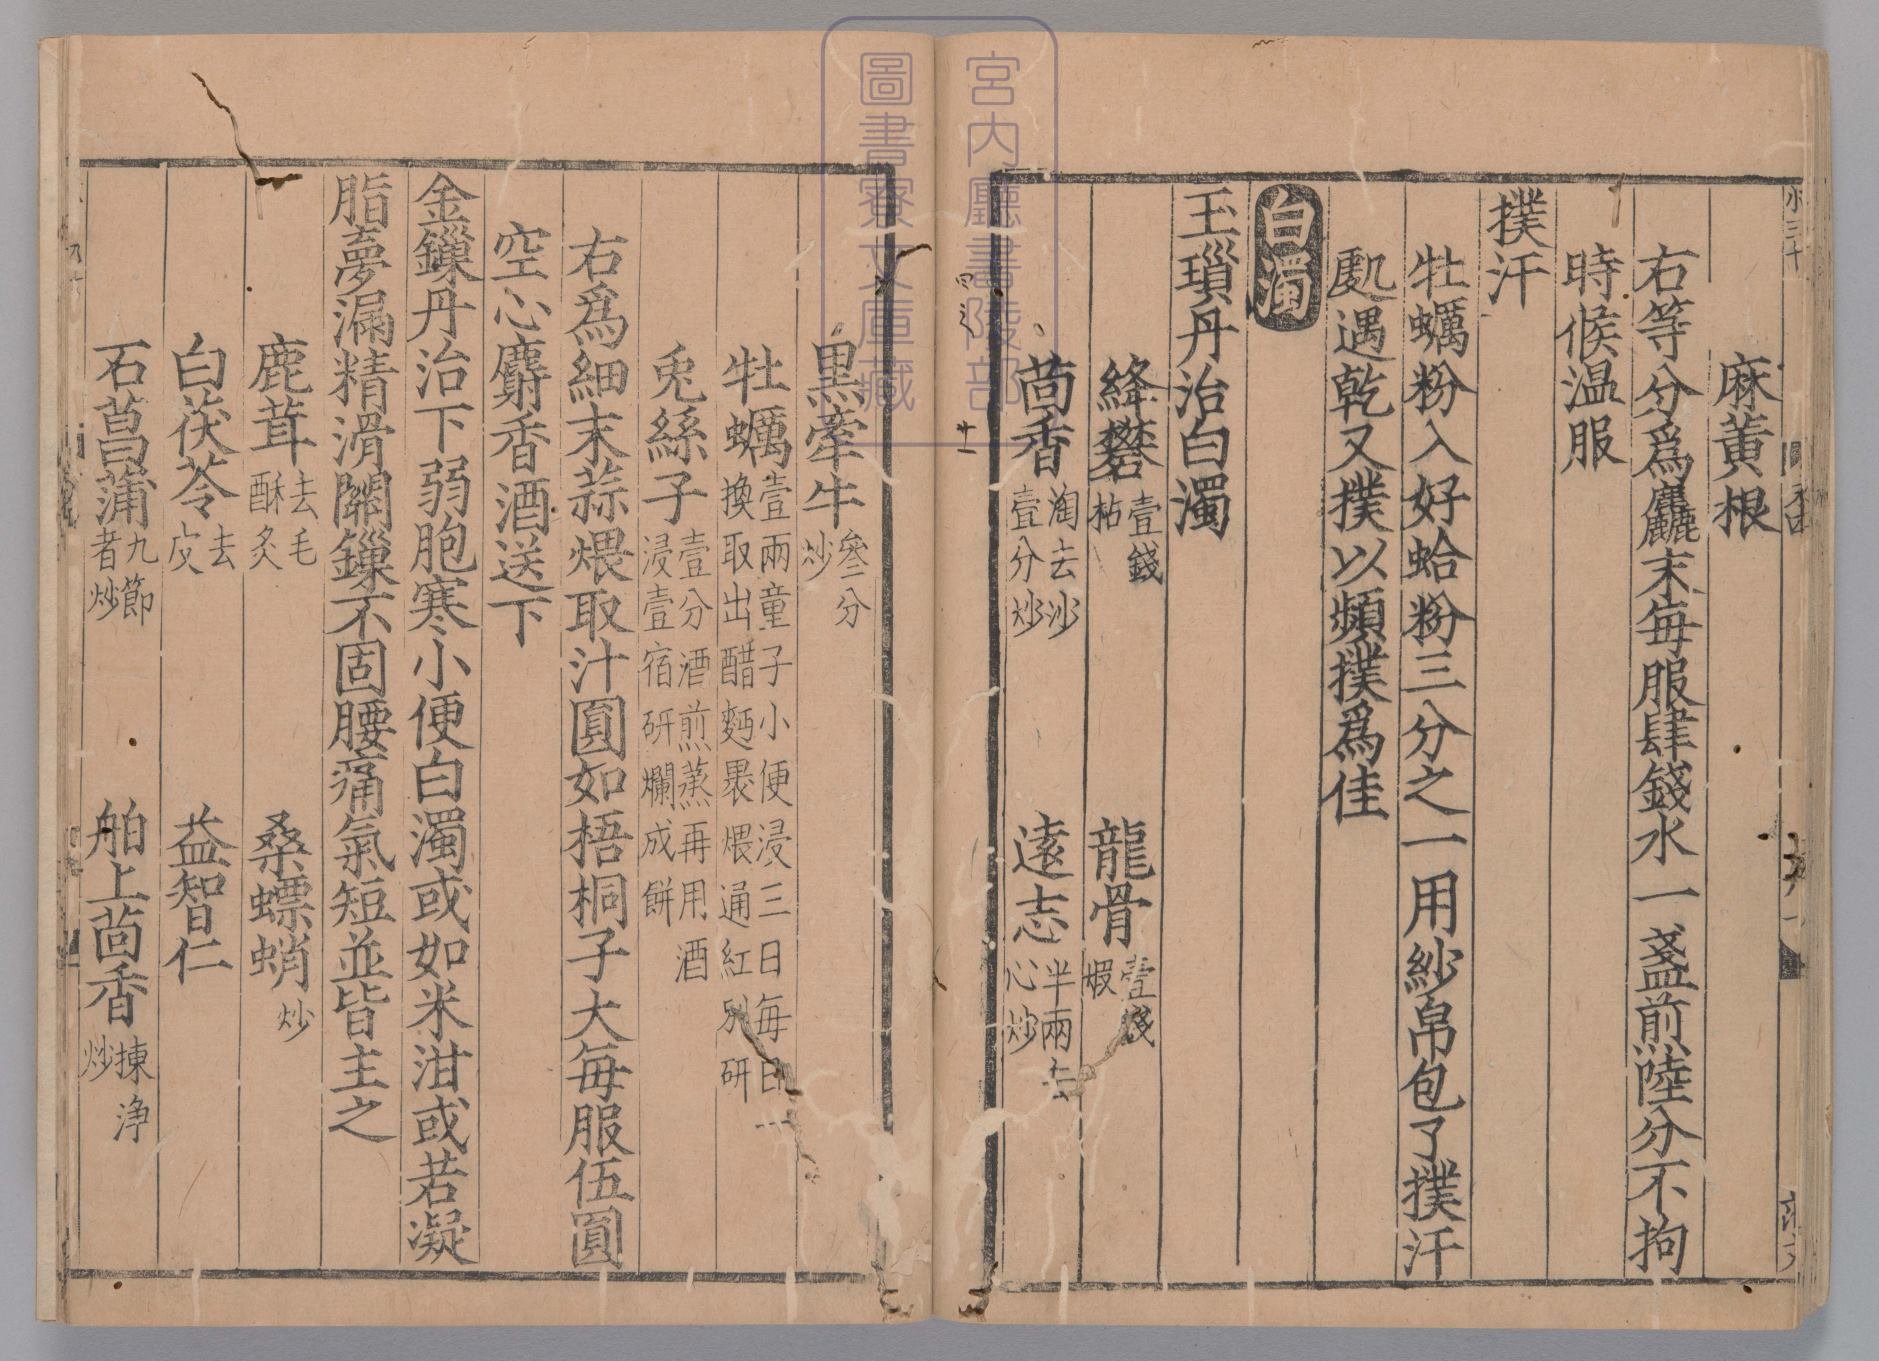 麻黄根
右等分爲麤末每服肆錢水一盞前陸分不拘
時候温服
撲汗
牡蠣粉入好蛤粉三分之一用紗帛包了撲汗
處遇乾又撲以頻撲爲佳
白濁
玉瑣丹治白濁
絳礬壹錢枯 龍骨壹錢煆
茴香淘去沙壹分炒 遠志半兩去心炒
黑牽牛叄分炒
牡蠣壹兩童子小便浸三日每日換取出醋麪褁煨通紅别研
兎絲子壹分酒煎蒸再用酒浸壹宿研爛成餅
右爲細末蒜煨取汁圓如梧桐子大每服伍圓
空心麝香酒送下
金鏁丹治下弱胞寒小便白濁或如米泔或若凝
脂夢漏精滑關鏁不固腰痛氣短並皆主之
鹿茸去毛酥炙 桑螵蛸炒
白茯苓去皮 益智仁
石菖蒲九節者炒 舶上茴香揀淨炒
宮内廳書陵部
圖書寮文庫藏